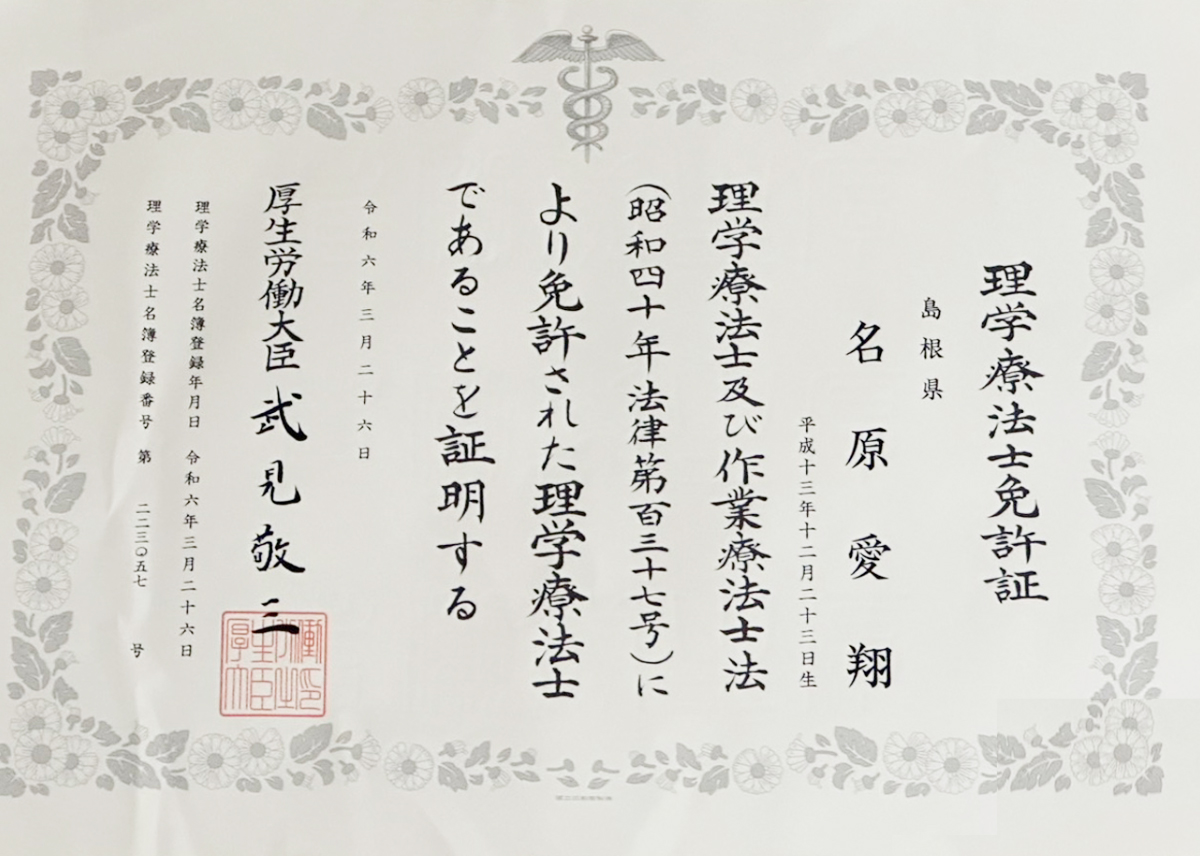 理学療法士免許証
島根県
名原愛翔
平成十三年十二月二十三日生
理学療法士及び作業療法士法
(昭和四十年法律第百三十七号)に
より免許された理学療法士
であることを証明する
令和六年三月二十六日
厚生労働大臣 武見敬三
理学療法士名簿登録年月日 令和六年三月二十六日
理学療法士名簿登録番号 第 二二三〇五七 号